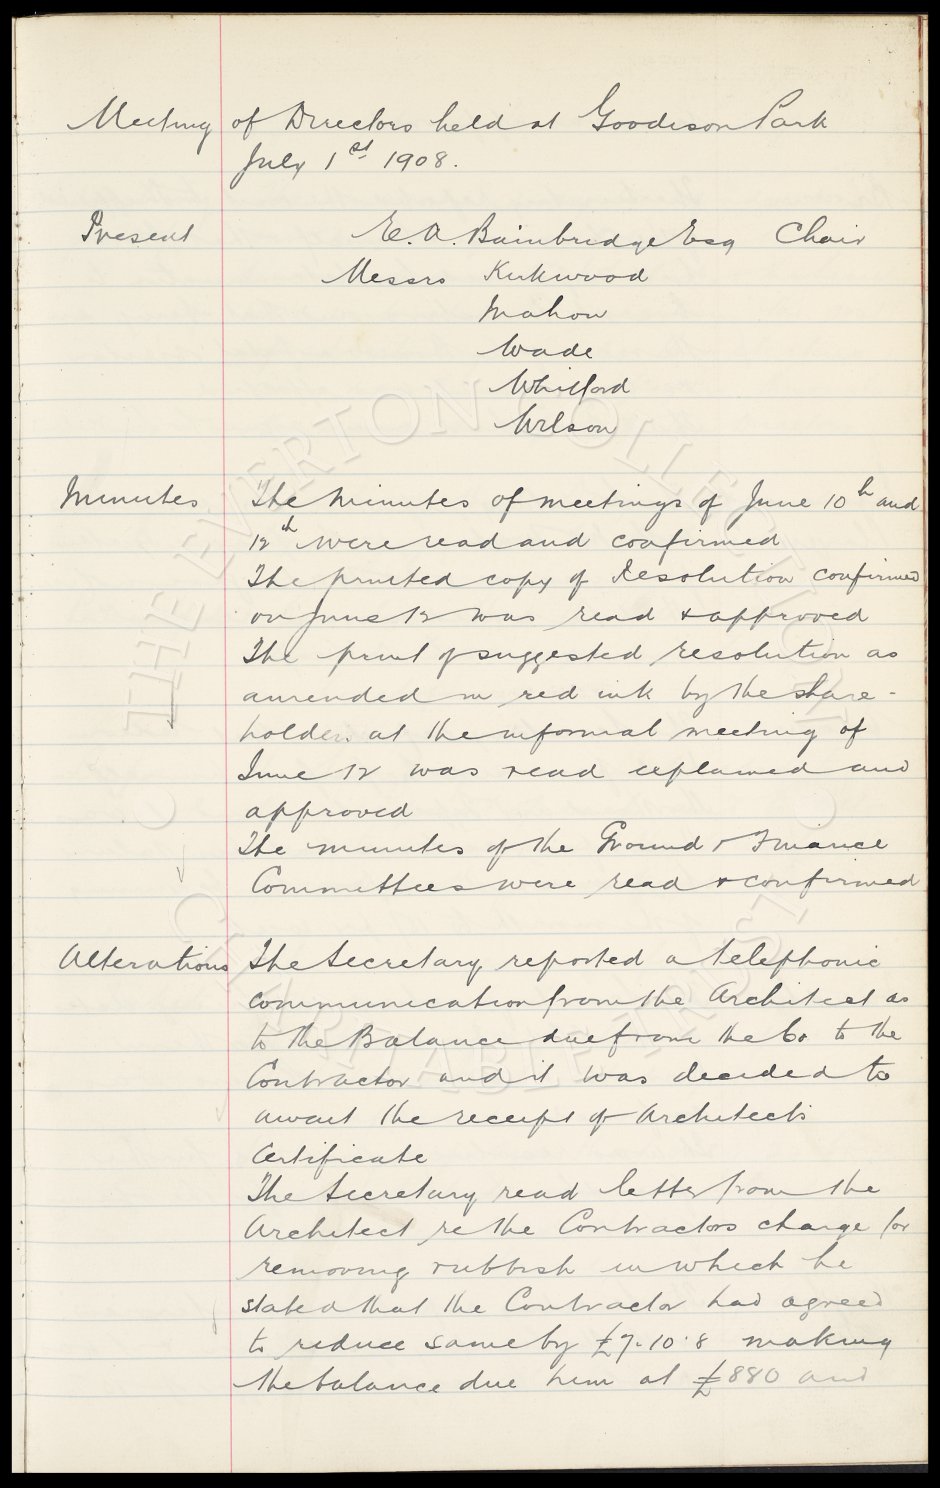 Meeting of Directors held at Goodison Park
July 1st 1908.
Present E. A. Bainbridge Esq Chair
Messrs Kirkwood
Mahon
Wade
Whitford
Wilson
Minutes The minutes of meetings of June 10th and
12th were read and confirmed
The printed copy of Resolution confirmed
on June 12 was read & approved
The print of suggested resolution as
amended in red ink by the share-
holders at the informal meeting of
June 12 was read explained and
approved
The minutes of the Ground & Finance
Committees were read & confirmed
Alterations The Secretary reported a telephonic
communication from the Architect as
to the Balance due from the Co to the
Contractor and it was decided to
await the receipt of Architects
Certificate
The Secretary read letter from the
Architect re the Contractors charge for
removing rubbish in which he
stated that the Contractor had agreed
to reduce same by £7.10.8 making
the balance due him at £880 and
© THE EVERTON COLLECTION
CHARITABLE TRUST ©